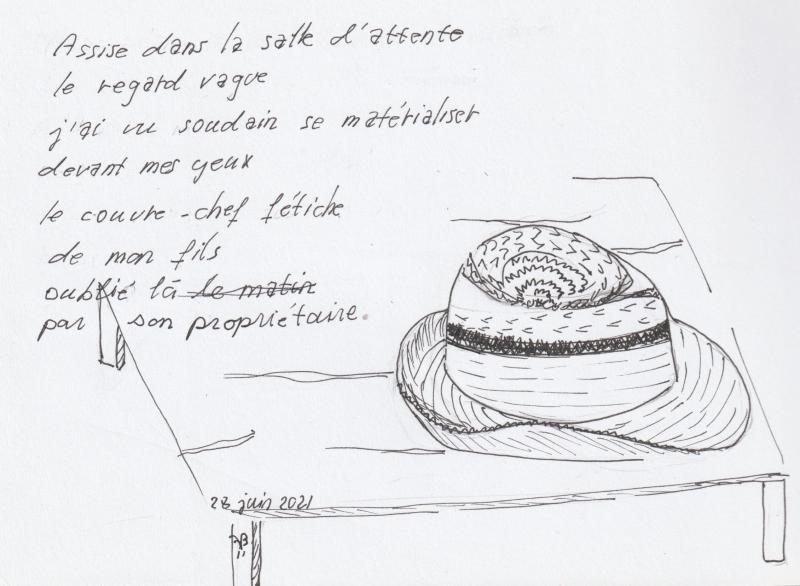 Assise dans la salle d'attente
le regard vague
j'ai vu soudain se matérialiser
devant mes yeux
le couvre-chef fétiche
de mon fils
oublié là le matin
par son propriétaire.
28 juin 2021